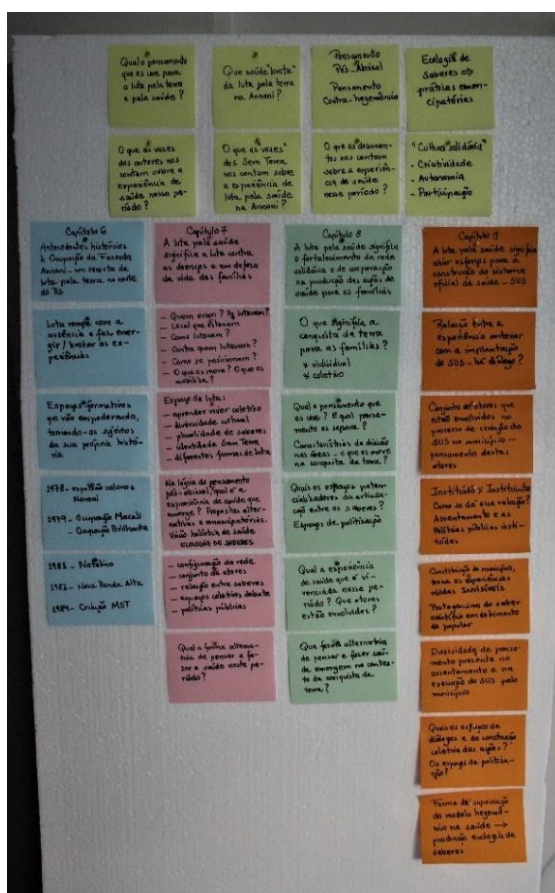 Qual o pensamento
que os une para
a luta pela terra
e pela saúde?
Que saúde "brota"
da luta pela terra
na Annoni?
Pensamento
Pós-Abissal
Pensamento
Contra-hegemônico
Ecologia de
Saberes ⇒
práticas eman-
cipatórias
O que as vozes
dos autores nos
contam sobre a
experiência de
saúde nesse pe-
ríodo?
O que as "vozes"
dos Sem Terra
nos contam sobre
a experiência de
luta pela saúde
na Annoni?
O que os documen-
tos nos contam
sobre a experiên-
cia de saúde
nesse período?
"Cultura solidária"
- Criatividade
- Autonomia
- Participação
Capítulo 6
Antecedentes históricos
à Ocupação da Fazenda
Annoni - um recorte da
luta pela terra no norte do
RS
Luta rompe com a
ausência e faz emer-
gir / brotar as ex-
periências
Espaços formativos
que vão empoderando,
tornando-os sujeitos
da sua própria histó-
ria
1978 - expulsão colonos
Nonoai
1979 - Ocupação Macali
- Ocupação Brilhante
1981 - Natalino
1982 - Nova Ronda Alta
1984 - Criação MST
Capítulo 7
A luta pela saúde
significa a luta contra
as doenças e em defesa
da vida das famílias
- Quem eram? Pq lutavam?
- Local que estavam
- Como lutavam?
- Contra quem lutavam?
- Como se posicionam?
- O que os move? O que os
mobiliza?
Espaço de luta:
- aprender viver coletivo
- diversidade cultural
- pluralidade de saberes
- identidade Sem Terra
- diferentes formas de luta
Na lógica do pensamento
pós-abissal, qual é a
experiência de saúde que
emerge? Propostas alter-
nativas e emancipatórias.
Visão holística de saúde
ECOLOGIA DE SABERES
- configuração da rede
- conjunto de atores
- relação entre saberes
- espaços coletivos debate
- políticas públicas
Qual a forma alterna-
tiva de pensar e fa-
zer a saúde neste pe-
ríodo?
Capítulo 8
A luta pela saúde significa
o fortalecimento da rede
solidária e de cooperação
na produção das ações de
saúde para as famílias
O que significa a
conquista da terra
para as famílias?
* individual
* coletivo
Qual o pensamento que
os une? E qual pensa-
mento os separa?
Características da divisão
nas áreas - o que os move
na conquista da terra?
Quais os espaços poten-
cializadores da articula-
ção entre os saberes?
Espaços de politização
Qual a experiência
de saúde que é vi-
venciada nesse pe-
ríodo? Que atores
estão envolvidos?
Que forma alternativa
de pensar e fazer saú-
de emergem no contex-
to da conquista da
terra?
Capítulo 9
A luta pela saúde significa
aliar esforços para a
construção do sistema
oficial de saúde - SUS
Relação entre a
experiência anterior
com a implantação
do SUS - há diálogo?
Conjunto de atores que
estão envolvidos no
processo de criação do
SUS no município -
pensamento destes
atores
Instituído x Instituinte
Como se dá essa relação?
Assentamento e as
Políticas públicas insti-
tuídas
Constituição do município,
torna as experiências
vividas Invisíveis
Protagonismo do saber
científico em detrimento do
popular
Diversidade de pensa-
mento presente no
assentamento e na
execução do SUS pelo
município
Quais os espaços de
diálogos e de construção
coletiva das ações?
Os espaços de politiza-
ção?
Forma de superação
do modelo hegemô-
nico na saúde →
produção ecologia de
saberes